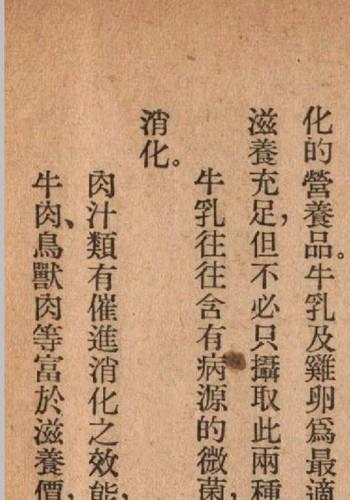 化的營養品。牛乳及雞卵爲最適
滋養充足,但不必只攝取此兩種
牛乳往往含有病源的微菌
消化。
肉汁類有催進消化之效能,
牛肉、鳥獸肉等富於滋養價,